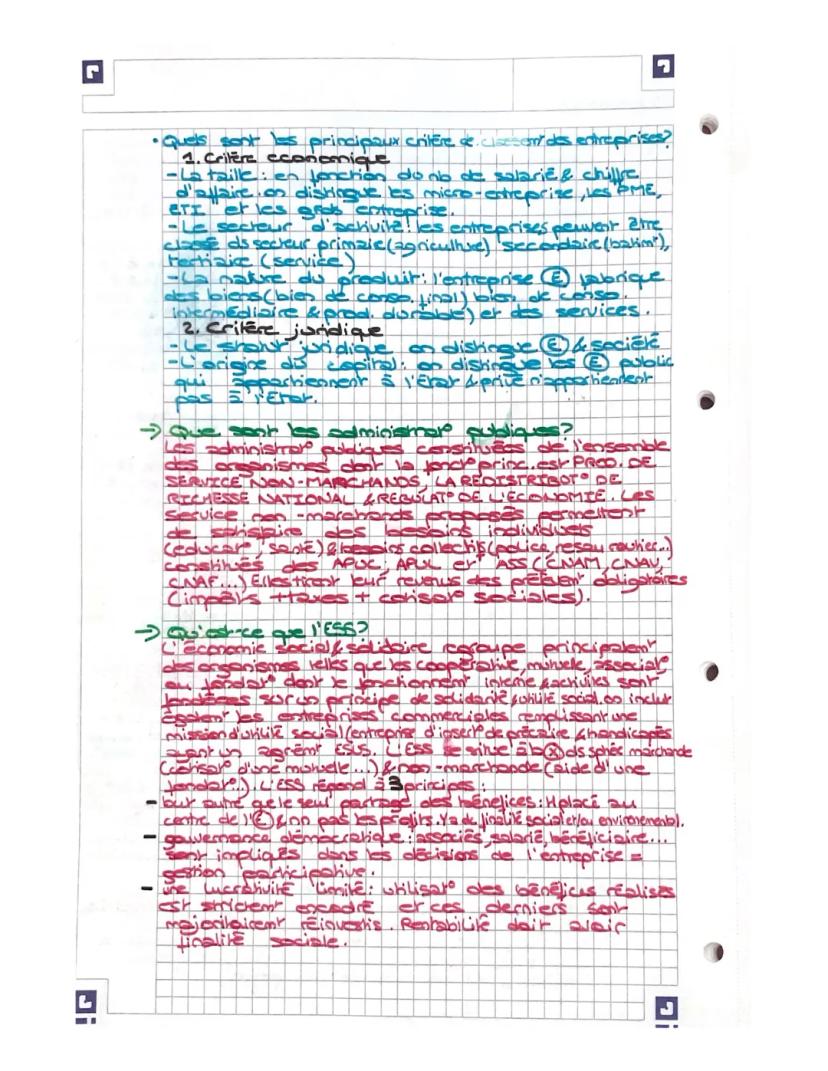 • Quels sont les principaux critère de classem^t des entreprises?
1. Critère economique
- La taille : en fonction du nb de salarié & chiffre
d'affaire. on distingue les micro-entreprise, les PME,
ETI et les grds entreprise.
- Le secteur d'activité : les entreprises peuvent être
classé ds secteur primaire (agriculture) secondaire (batim^t),
tertiaire (service)
- La nature du produit : l'entreprise Ⓔ fabrique
des biens (bien de conso. final) bien de conso.
intermédiaire & prod. durable) et des services.
2. Critère juridique
- Le statut juridique on distingue Ⓔ & société
- L'origine du capital : on distingue les Ⓔ public
qui appartiennent à l'État & privé n'appartiennent
pas à l'État.
→ Que sont les administrat° publiques?
Les administrat° publiques constituées de l'ensemble
des organismes dont la fonct° princ. est PROD. DE
SERVICE NON-MARCHANDS, LA REDISTRIBUT° DE
RICHESSE NATIONAL & REGULAT° DE L'ECONOMIE. Les
service non-marchands proposés permettent
de satisfaire des besoins individuels
(educat°, santé) & besoins collectifs (police, reseau routier...)
constitués des APUC, APUL et ASS (CNAM, CNAV,
CNAF...) Elles tirent leur revenus des prélèvem^t obligatoires
(impôts + taxes + cotisat° sociales).
→ Qu'est-ce que l'ESS?
L'économie social & solidaire regroupe principalem^t
des organismes telles que les coopérative, mutuelle, associat°
ou fondat° dont le fonctionnem^t interne & activités sont
fondées sur un principe de solidarité & utilité social. on inclut
égalem^t les entreprises commerciales remplissant une
mission d'utilité social (entreprise d'insert° de précaire & handicapés
ayant un agrém^t ESUS. L'ESS se situe à la Ⓧ ds sphère marchande
(cotisat° d'une mutuelle...) & non-marchande (aide d'une
fondat°..). L'ESS répond à 3 principes :
- but autre que le seul partage des bénéfices : H placé au
centre de l'Ⓔ & nn pas les profits. Ya de finalité social et/ou environemental.
- gouvernance démocratique : associés, salarié, bénéficiaire...
sont impliqués dans les décisions de l'entreprise =
gestion participative.
- une lucrativité limité : utilisat° des bénéfices réalisés
est strictem^t encadré et ces derniers sont
majoritairem^t réinvestis. Rentabilité doit avoir
finalité sociale.